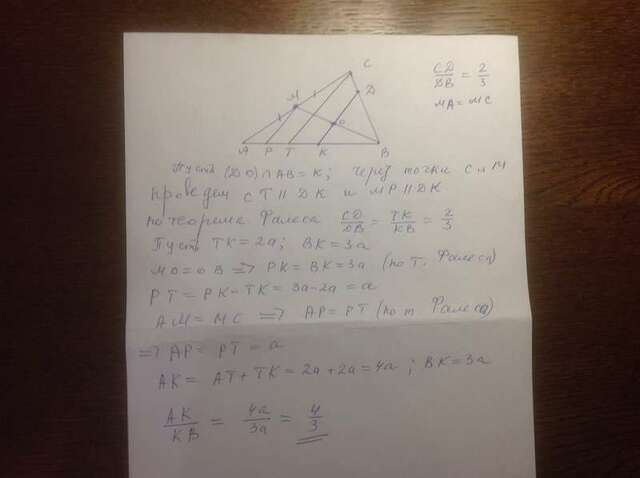 C
CD/DB = 2/3
D
MA = MC
M
O
A P T K B
Пусть (DO) ∩ AB = K; через точки C и M
проведем CT || DK и MP || DK
по теореме Фалеса CD/DB = TK/KB = 2/3
Пусть TK = 2a; BK = 3a
MO = OB => PK = BK = 3a (по т. Фалеса)
PT = PK - TK = 3a - 2a = a
AM = MC => AP = PT (по т. Фалеса)
=> AP = PT = a
AK = AT + TK = 2a + 2a = 4a; BK = 3a
AK/KB = 4a/3a = 4/3